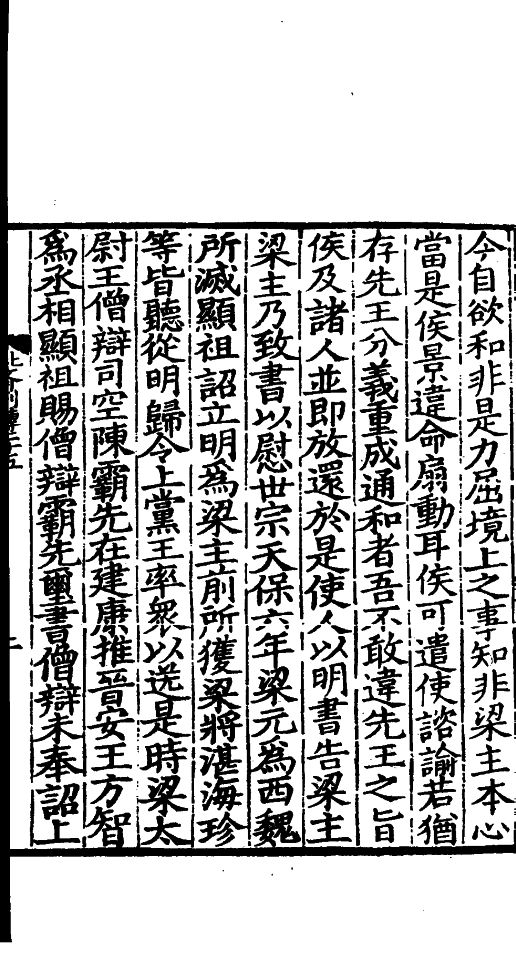 今自欲和非是力屈境上之事知非梁主本心
當是侯景違命扇動耳侯可遣使諮論若猶
存先王分義重成通和者吾不敢違先王之旨
侯及諸人並即放還於是使人以明書告梁主
梁主乃致書以慰世宗天保六年梁元爲西魏
所滅顯祖詔立明爲梁主前所獲梁將湛海珍
等皆聽從明歸令上黨王率衆以送是時梁太
尉王僧辯司空陳霸先在建康推晉安王方智
爲丞相顯祖賜僧辯霸先璽書僧辯未奉詔上
二